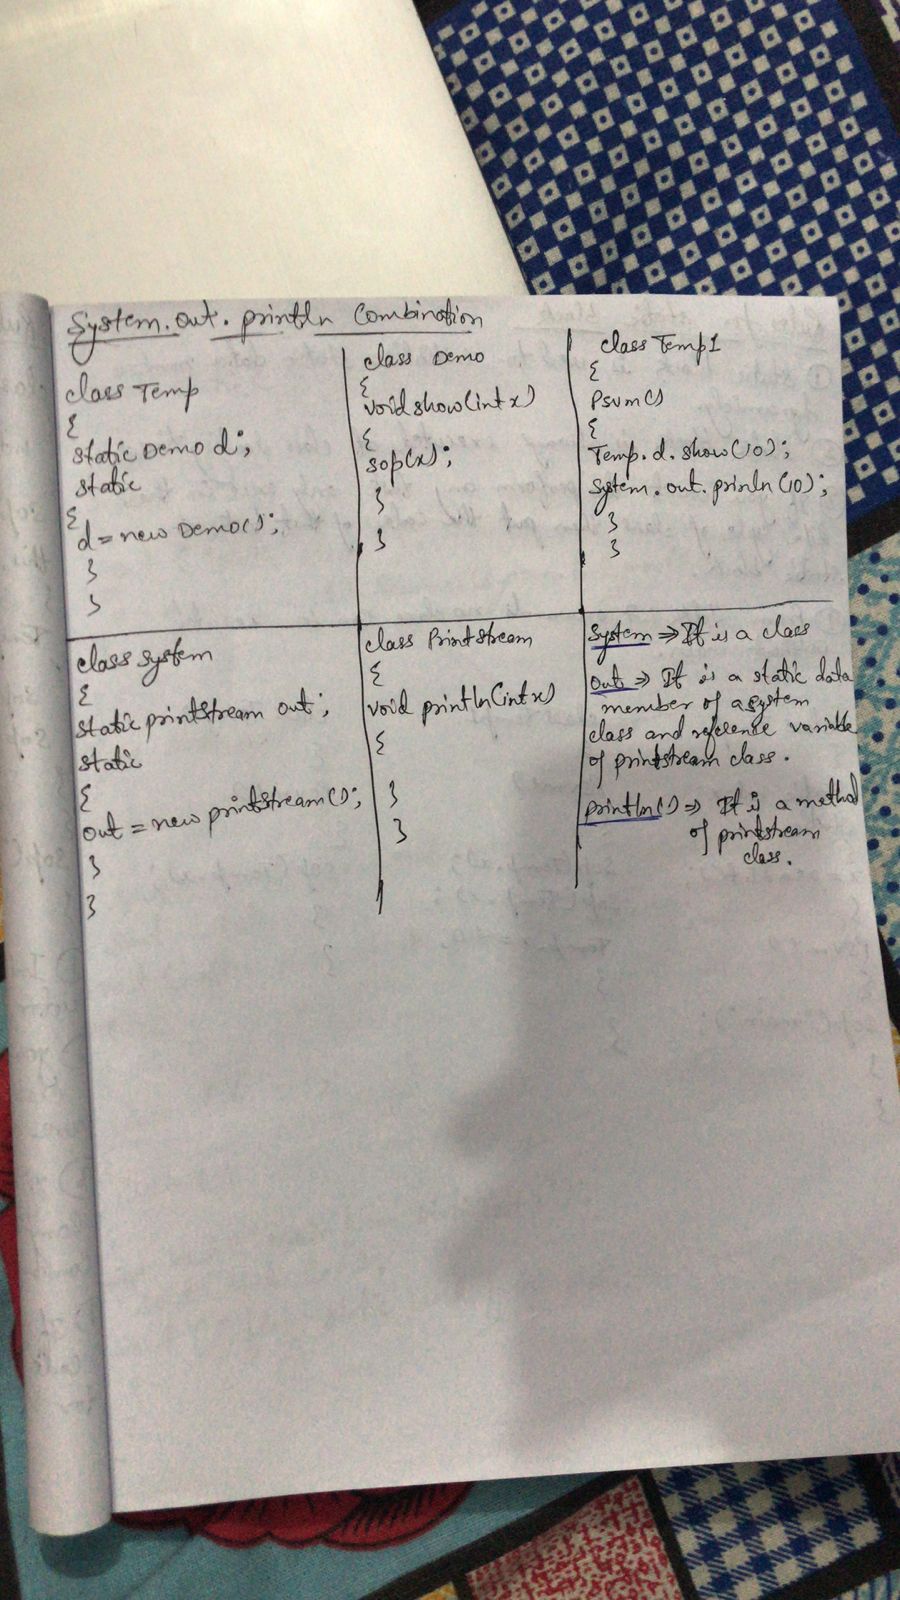 System.out.println Combination
class Temp
{
static Demo d;
static
{
d = new Demo();
}
}
class Demo
{
void show(int x)
{
sop(x);
}
}
class Temp1
{
Psvm()
{
Temp.d.show(10);
System.out.prinln(10);
}
}
class system
{
static printstream out;
static
{
out = new printstream();
}
}
class Printstream
{
void println(int x)
{
}
}
System => It is a class
Out => It is a static data
member of a system
class and reference variable
of printstream class.
println() => It is a method
of printstream
class.